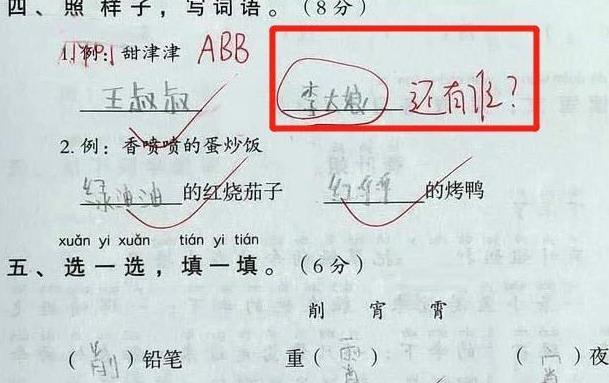 四、照样子，写词语。（8分）
1. 例：甜津津 ABB
王叔叔 李大娘 还有谁？
2. 例：香喷喷的蛋炒饭
绿油油的红烧茄子 红彤彤的烤鸭
xuǎn yi xuǎn tián yi tián
五、选一选，填一填。（6分）
削 宵 霄
（削）铅笔 重（霄） （宵）夜